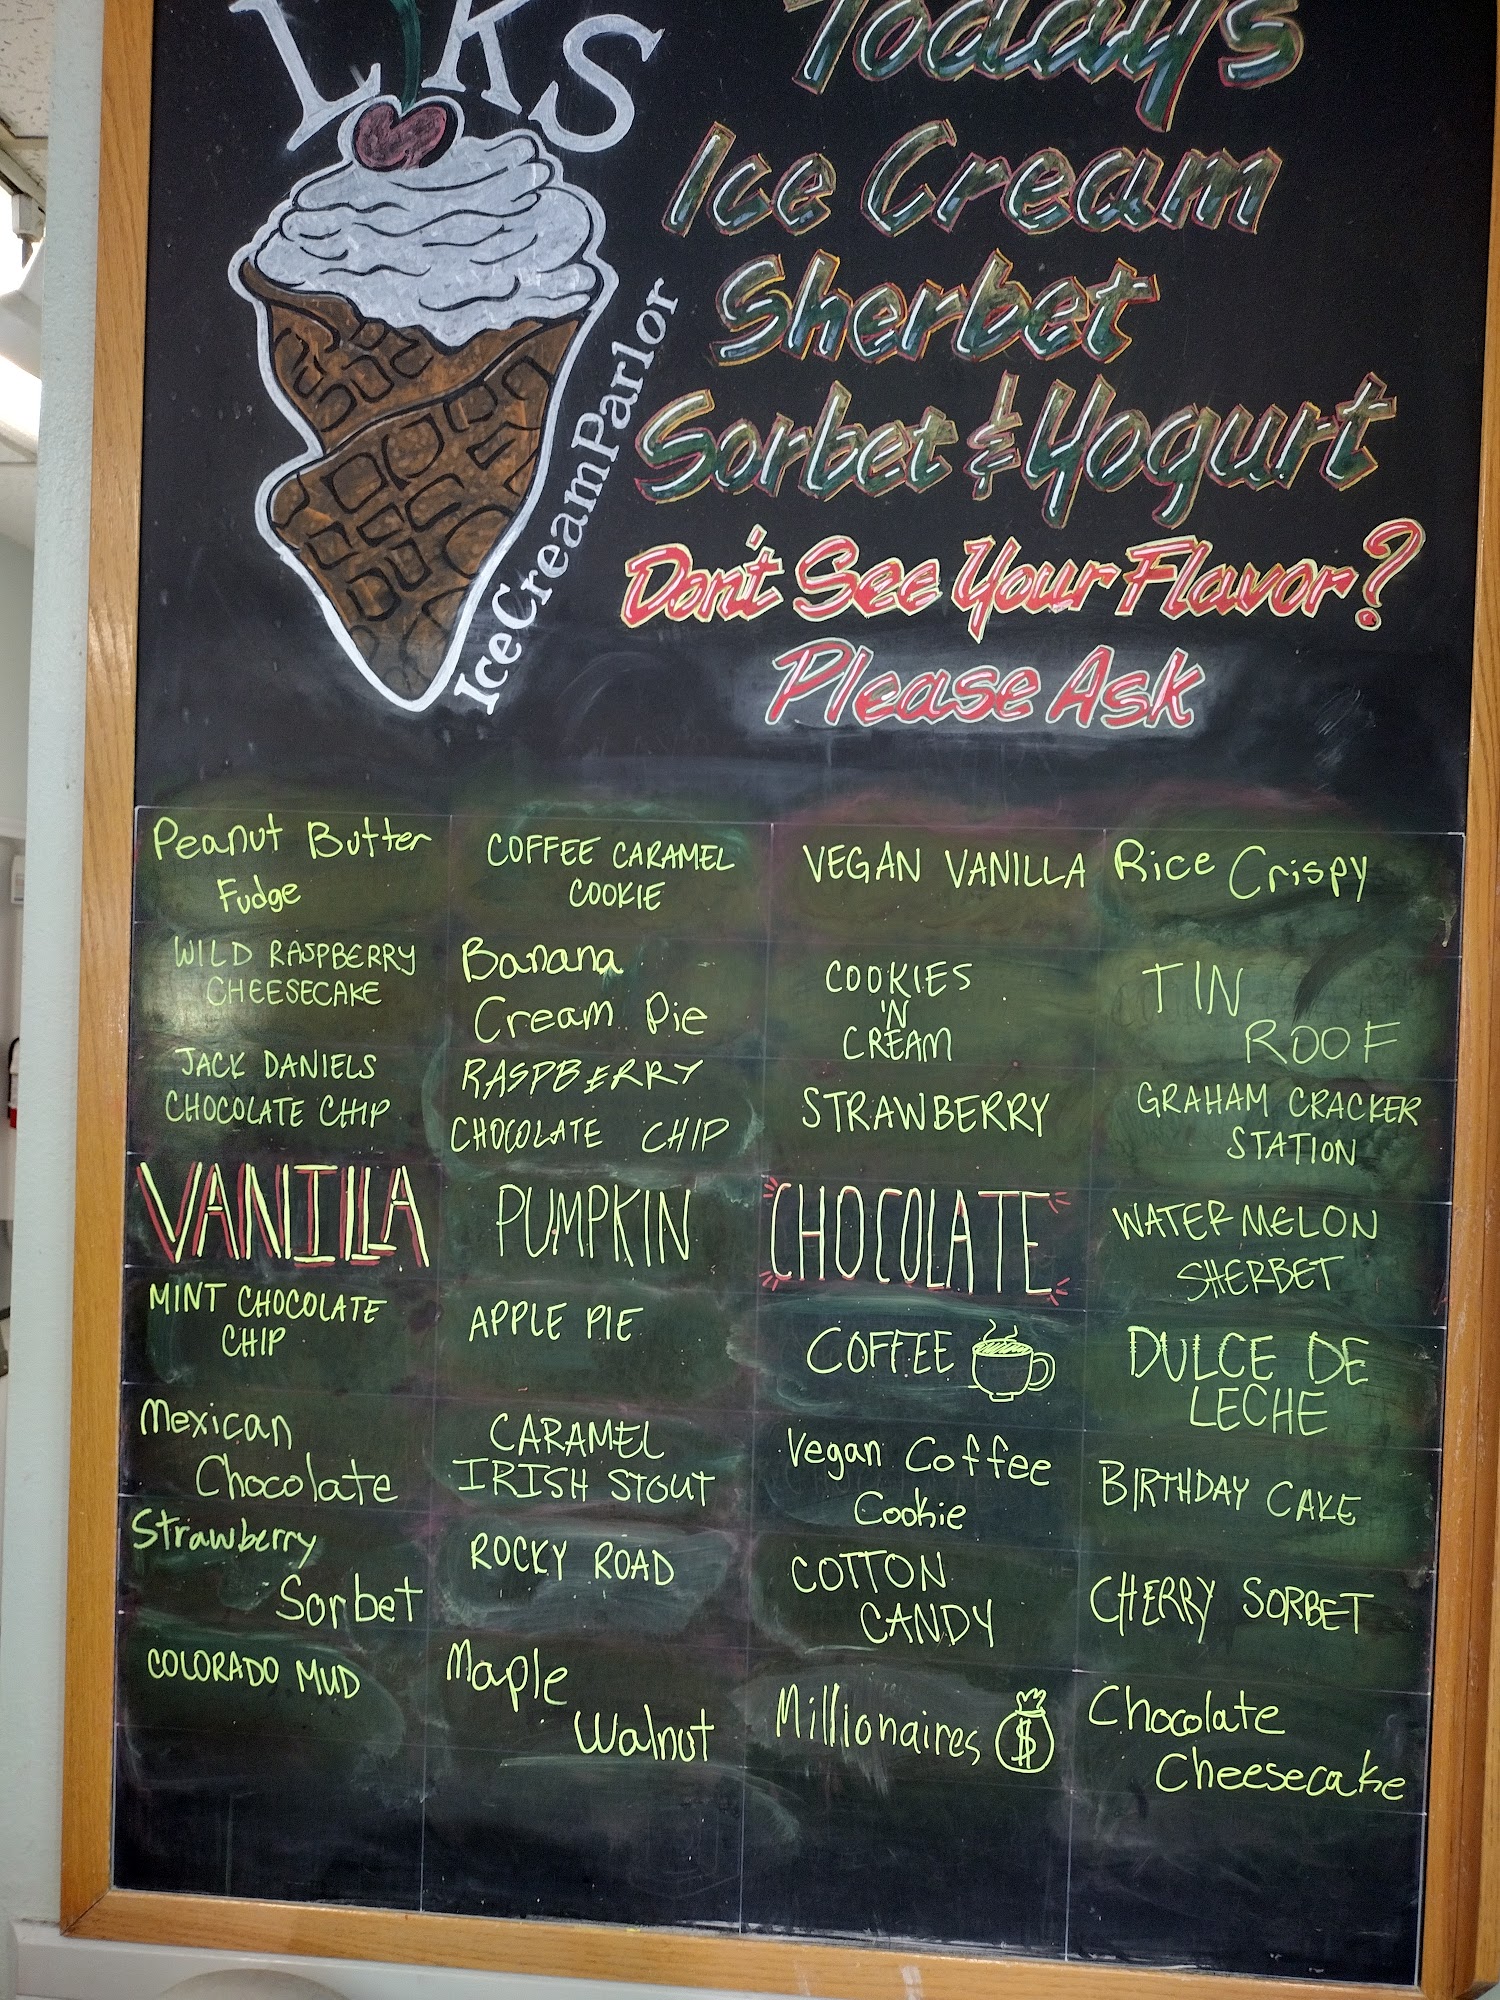 LKS
IceCreamParlor
Today's
Ice Cream
Sherbet
Sorbet & Yogurt
Don't See Your Flavor?
Please Ask
Peanut Butter
Fudge
WILD RASPBERRY
CHEESECAKE
JACK DANIELS
CHOCOLATE CHIP
VANILLA
MINT CHOCOLATE
CHIP
Mexican
Chocolate
Strawberry
Sorbet
COLORADO MUD
COFFEE CARAMEL
COOKIE
Banana
Cream Pie
RASPBERRY
CHOCOLATE CHIP
PUMPKIN
APPLE PIE
CARAMEL
IRISH STOUT
ROCKY ROAD
Maple
Walnut
VEGAN VANILLA
COOKIES
'N
CREAM
STRAWBERRY
CHOCOLATE
COFFEE
Vegan Coffee
Cookie
COTTON
CANDY
Millionaires $
Rice Crispy
TIN
ROOF
GRAHAM CRACKER
STATION
WATERMELON
SHERBET
DULCE DE
LECHE
BIRTHDAY CAKE
CHERRY SORBET
Chocolate
Cheesecake